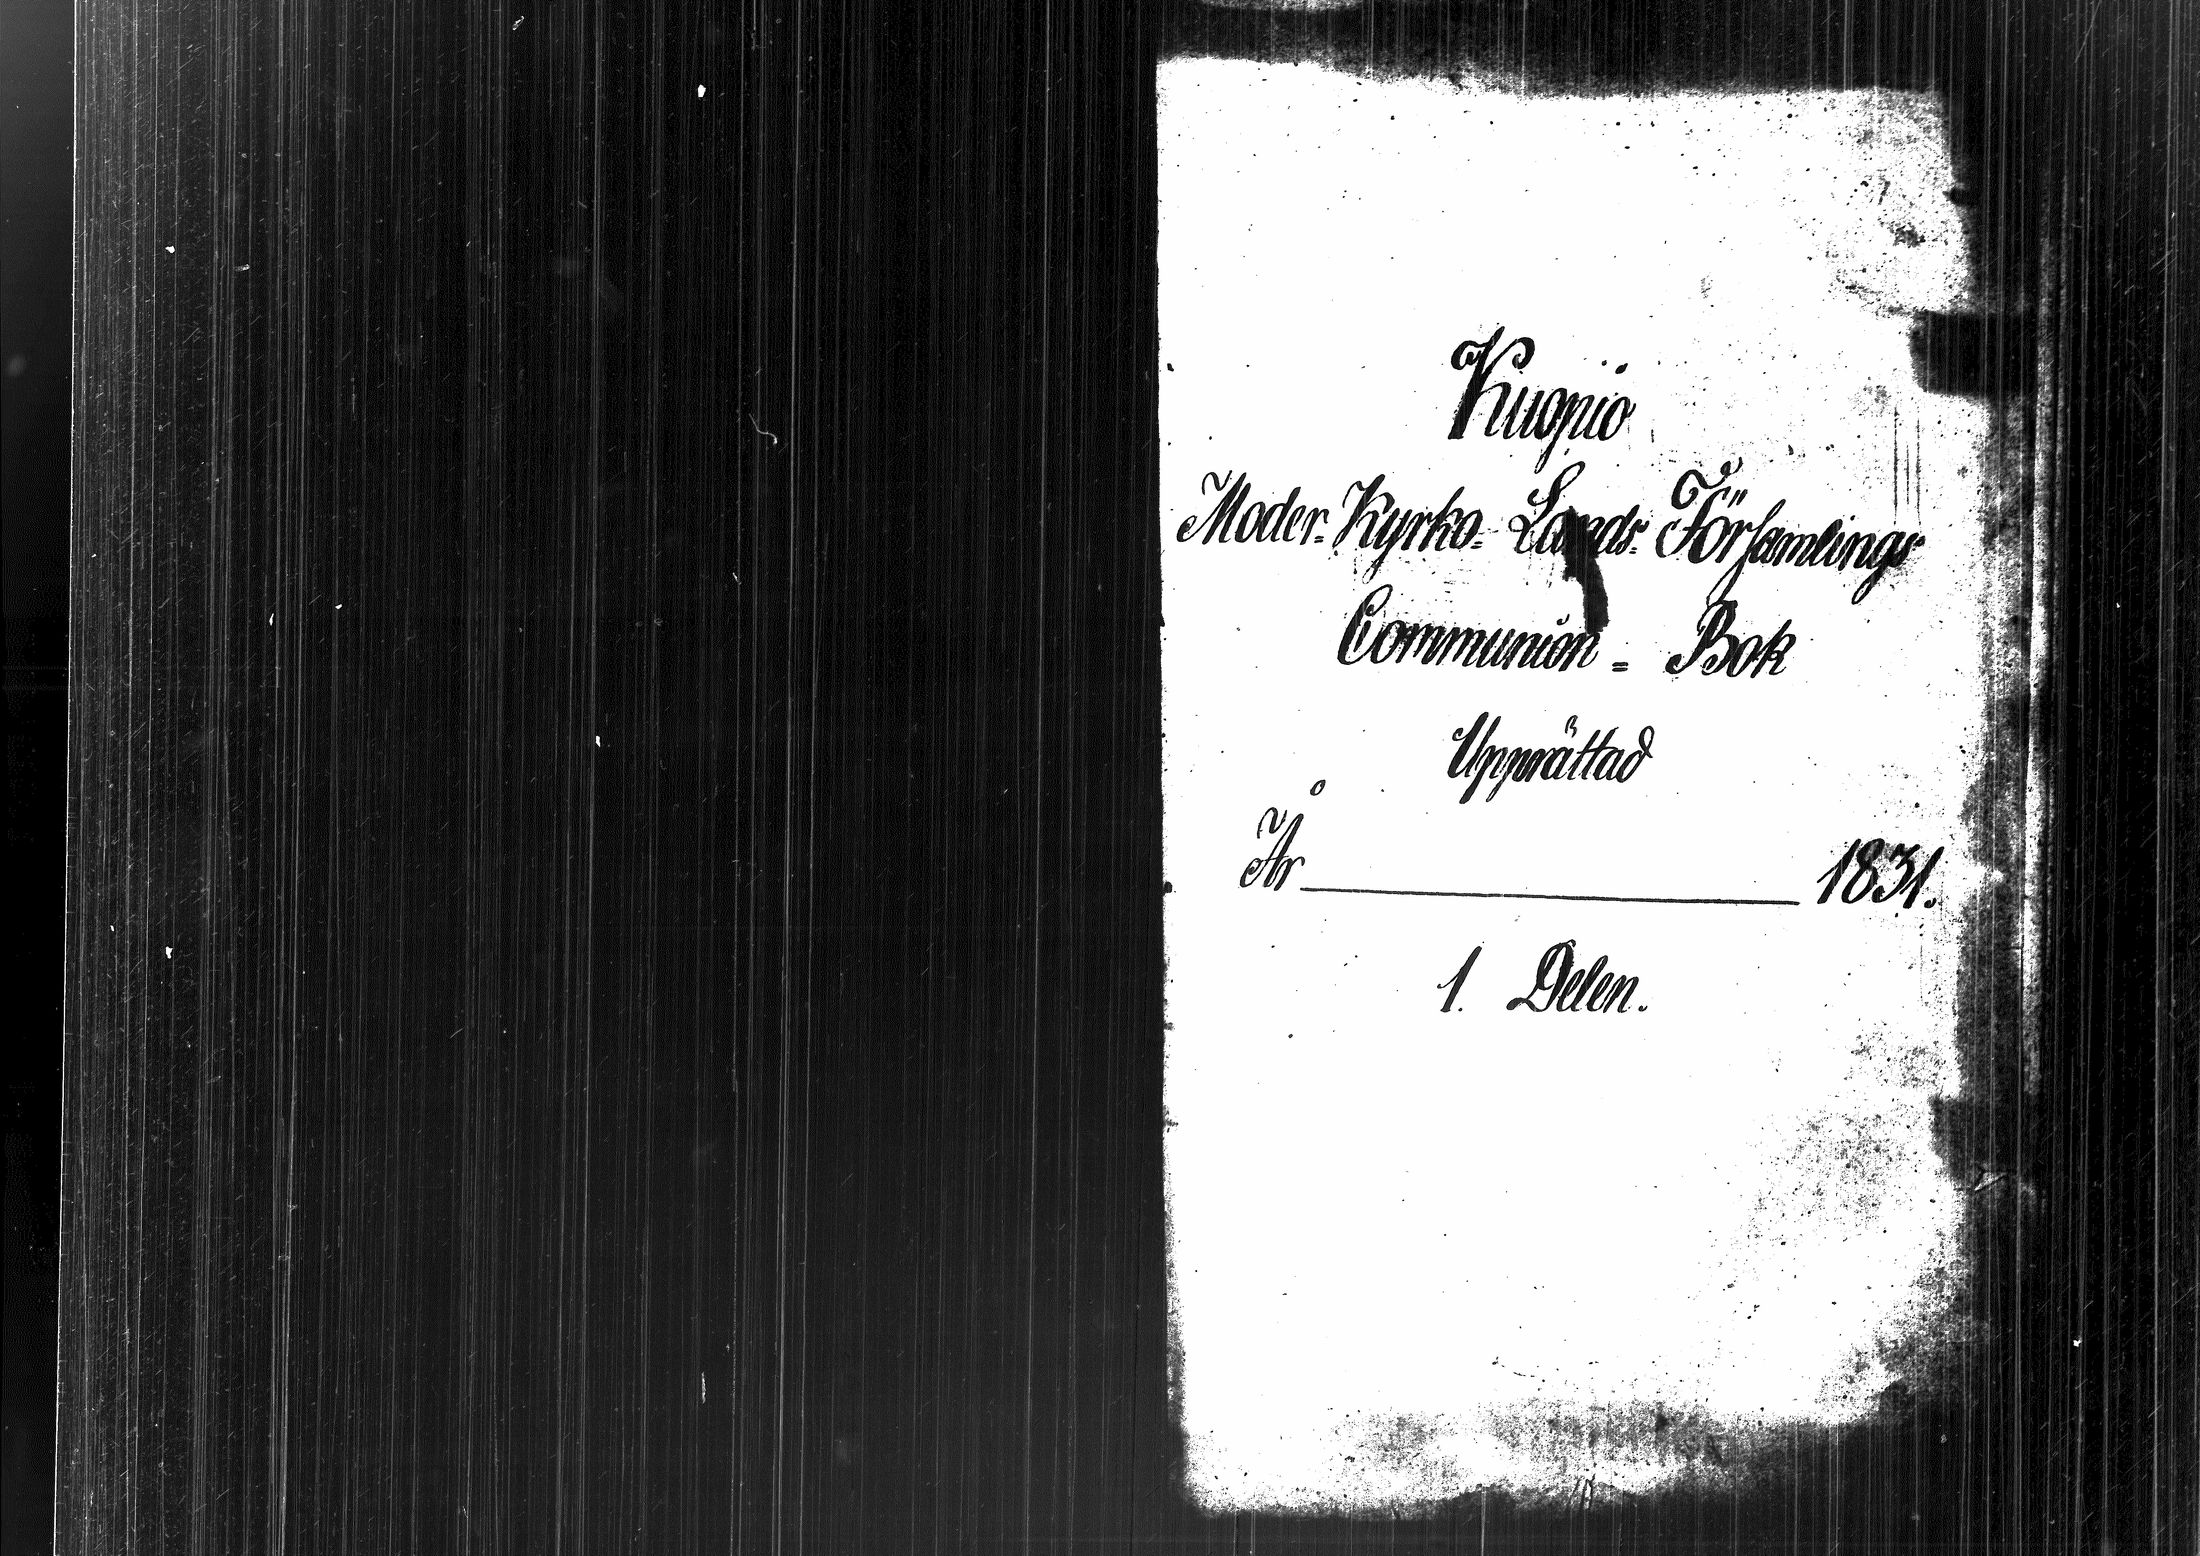 Kuopio
Moder=Kyrko=Lands=Församlings
Communion=Bok
Upprättad
År 1831.
1. Delen.